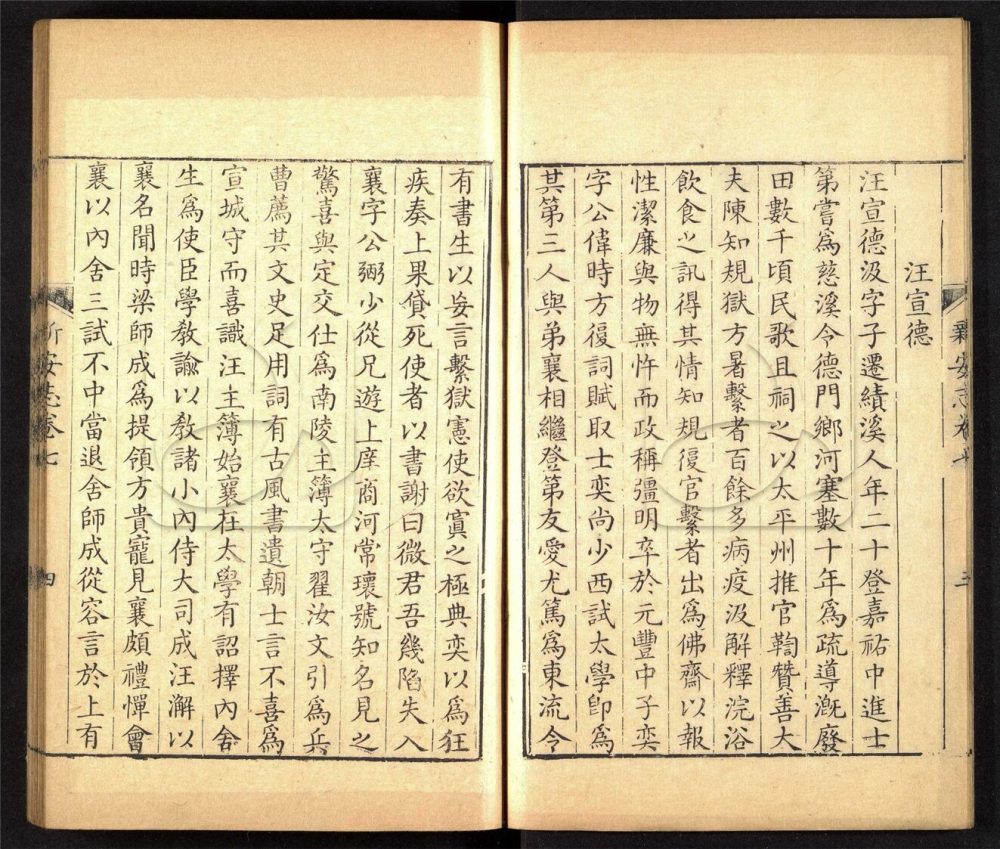 新安志卷七
三
汪宣德
汪宣德汲字子遷績溪人年二十登嘉祐中進士
第嘗爲慈溪令德門鄉河塞數十年爲疏導溉廢
田數千頃民歌且祠之以太平州推官鞫贊善大
夫陳知規獄方暑繫者百餘多病疫汲解釋浣浴
飲食之訊得其情知規復官繫者出爲佛齋以報
性潔廉與物無忤而政稱彊明卒於元豐中子奕
字公偉時方復詞賦取士奕尚少西試太學卽爲
其第三人與弟襄相繼登第友愛尤篤爲東流令
有書生以妄言繫獄憲使欲寘之極典奕以爲狂
疾奏上果貸死使者以書謝曰微君吾幾陷失入
襄字公弼少從兄遊上庠商河常瓌號知名見之
驚喜與定交仕爲南陵主簿太守翟汝文引爲兵
曹薦其文史足用詞有古風書遺朝士言不喜爲
宣城守而喜識汪主簿始襄在太學有詔擇內舍
生爲使臣學敎諭以敎諸小內侍大司成汪澥以
襄名聞時梁師成爲提領方貴寵見襄頗禮憚會
襄以內舍三試不中當退舍師成從容言於上有
新安志卷七
四